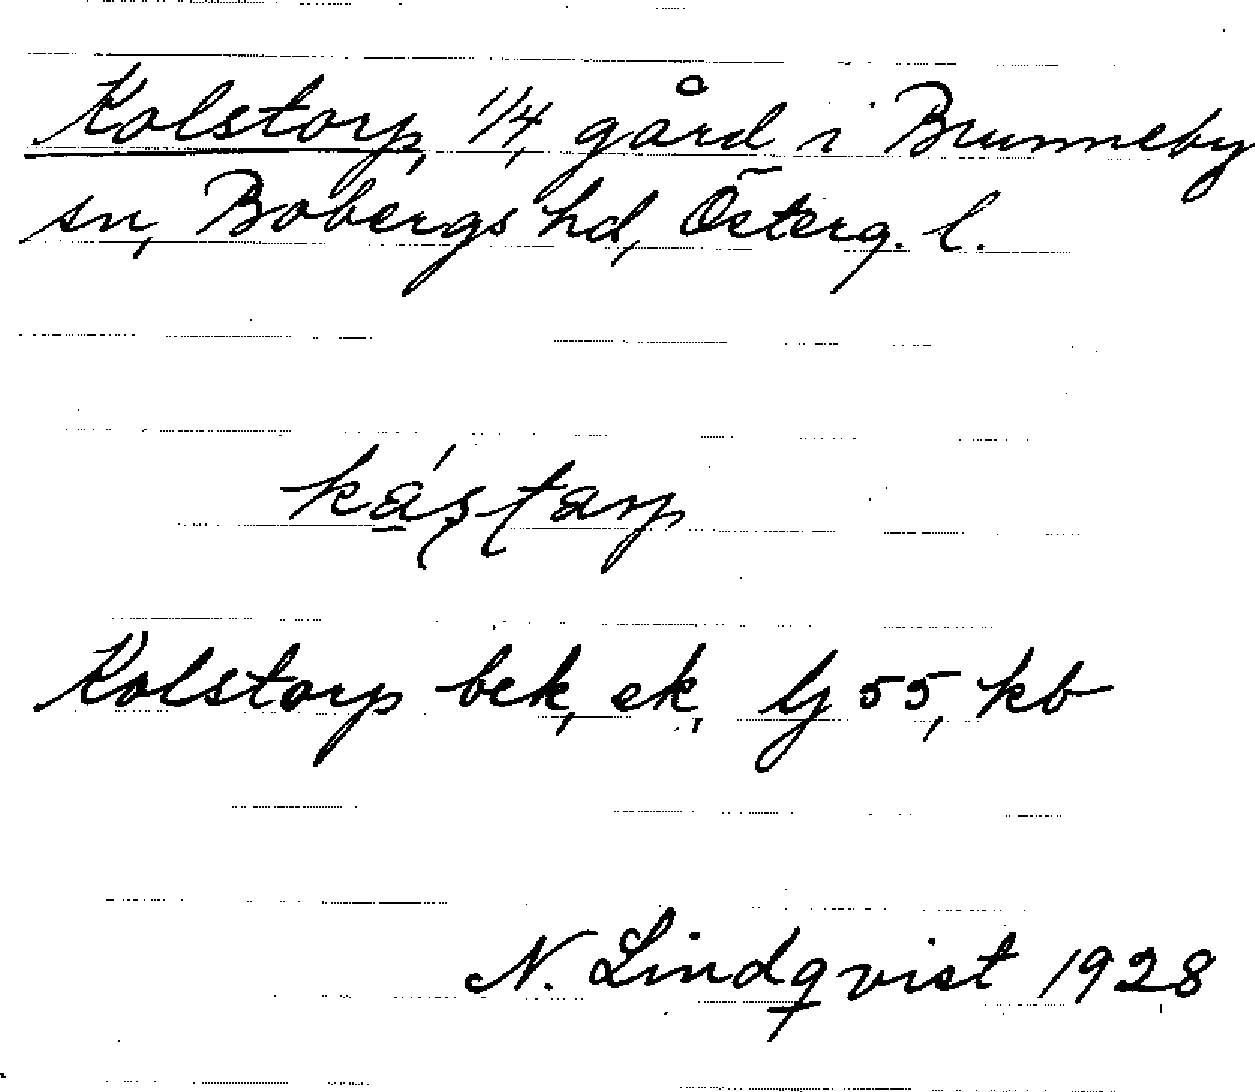 Kolstorp, 1/4, gård i Brunneby
sn, Bobergs hd, Österg. l.
Kolstorp bek, ek, lj 55, kb
N. Lindqvist 1928